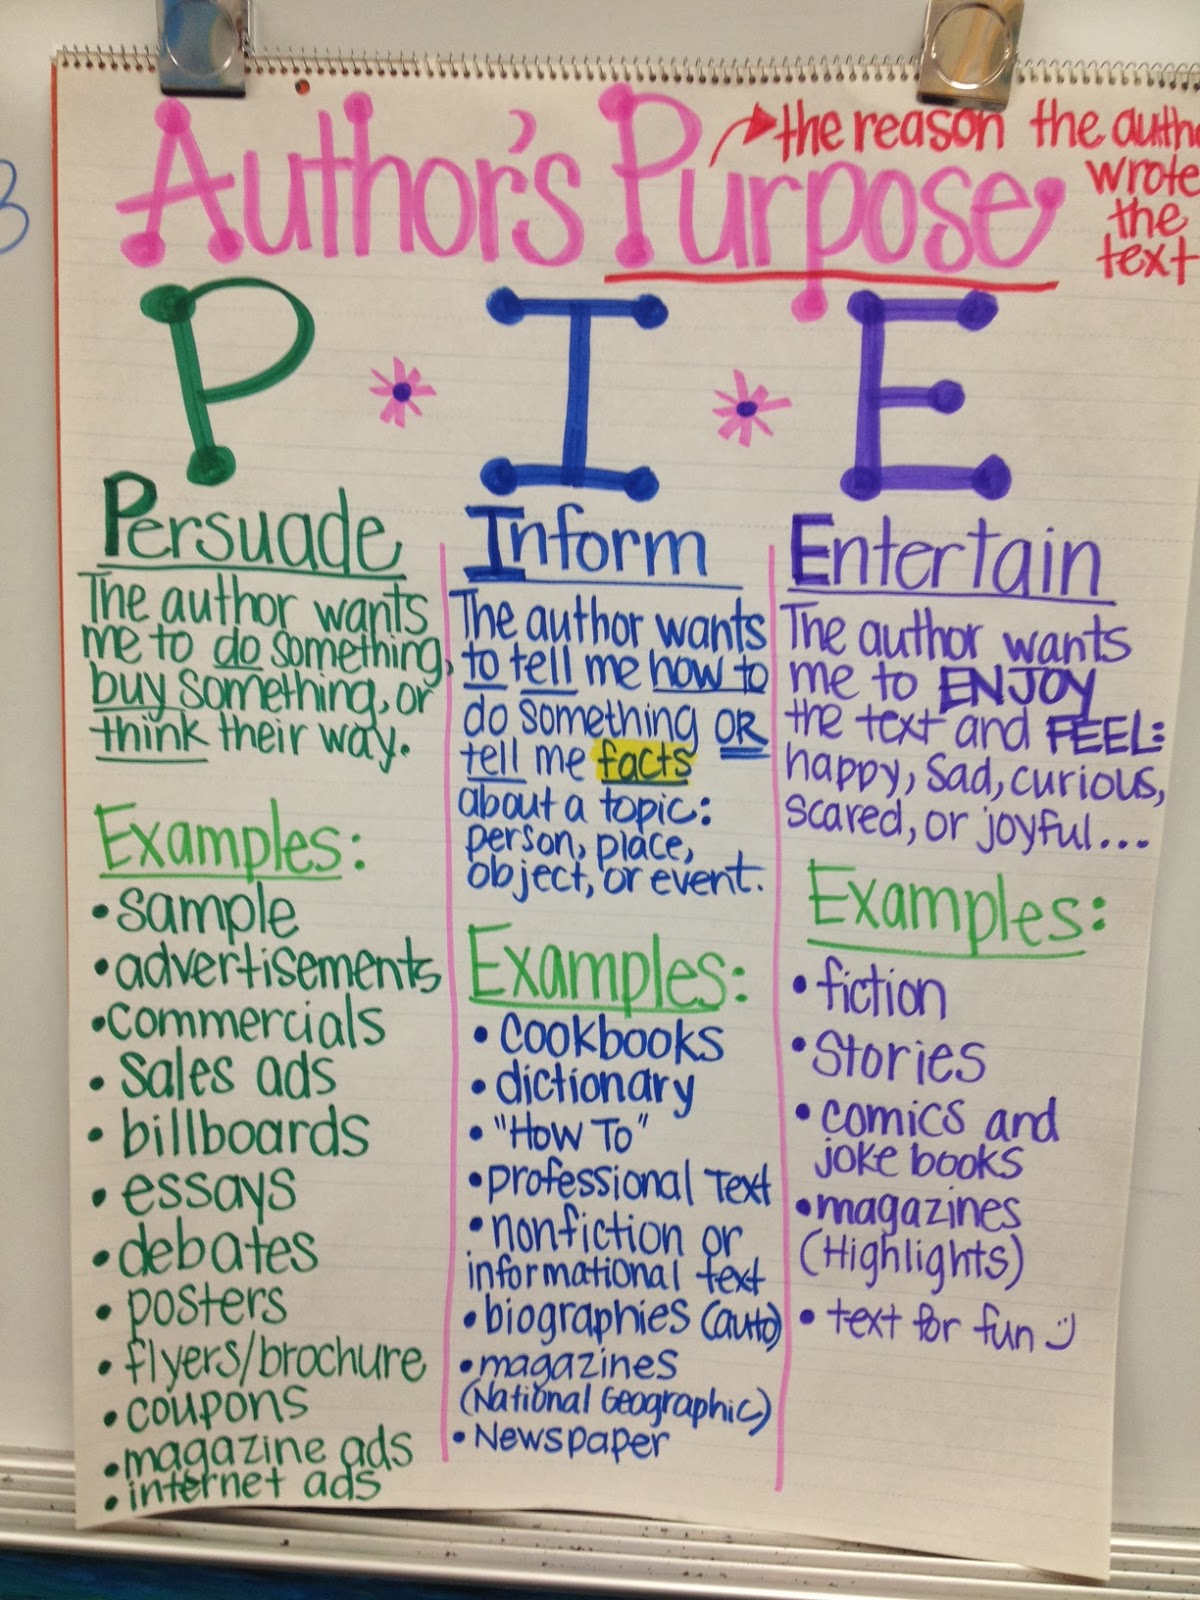 Author's Purpose
the reason the autho
wrote
the
text
P * I * E
Persuade
The author wants
me to do something,
buy something, or
think their way.
Examples:
• sample
• advertisements
• commercials
• sales ads
• billboards
• essays
• debates
• posters
• flyers/brochure
• coupons
• magazine ads
• internet ads
Inform
The author wants
to tell me how to
do something OR
tell me facts
about a topic:
person, place,
object, or event.
Examples:
• cookbooks
• dictionary
• "How To"
• professional Text
• nonfiction or
informational text
• biographies (auto)
• magazines
(National Geographic)
• Newspaper
Entertain
The author wants
me to ENJOY
the text and FEEL:
happy, sad, curious,
scared, or joyful...
Examples:
• fiction
• Stories
• comics and
joke books
• magazines
(Highlights)
• text for fun :)